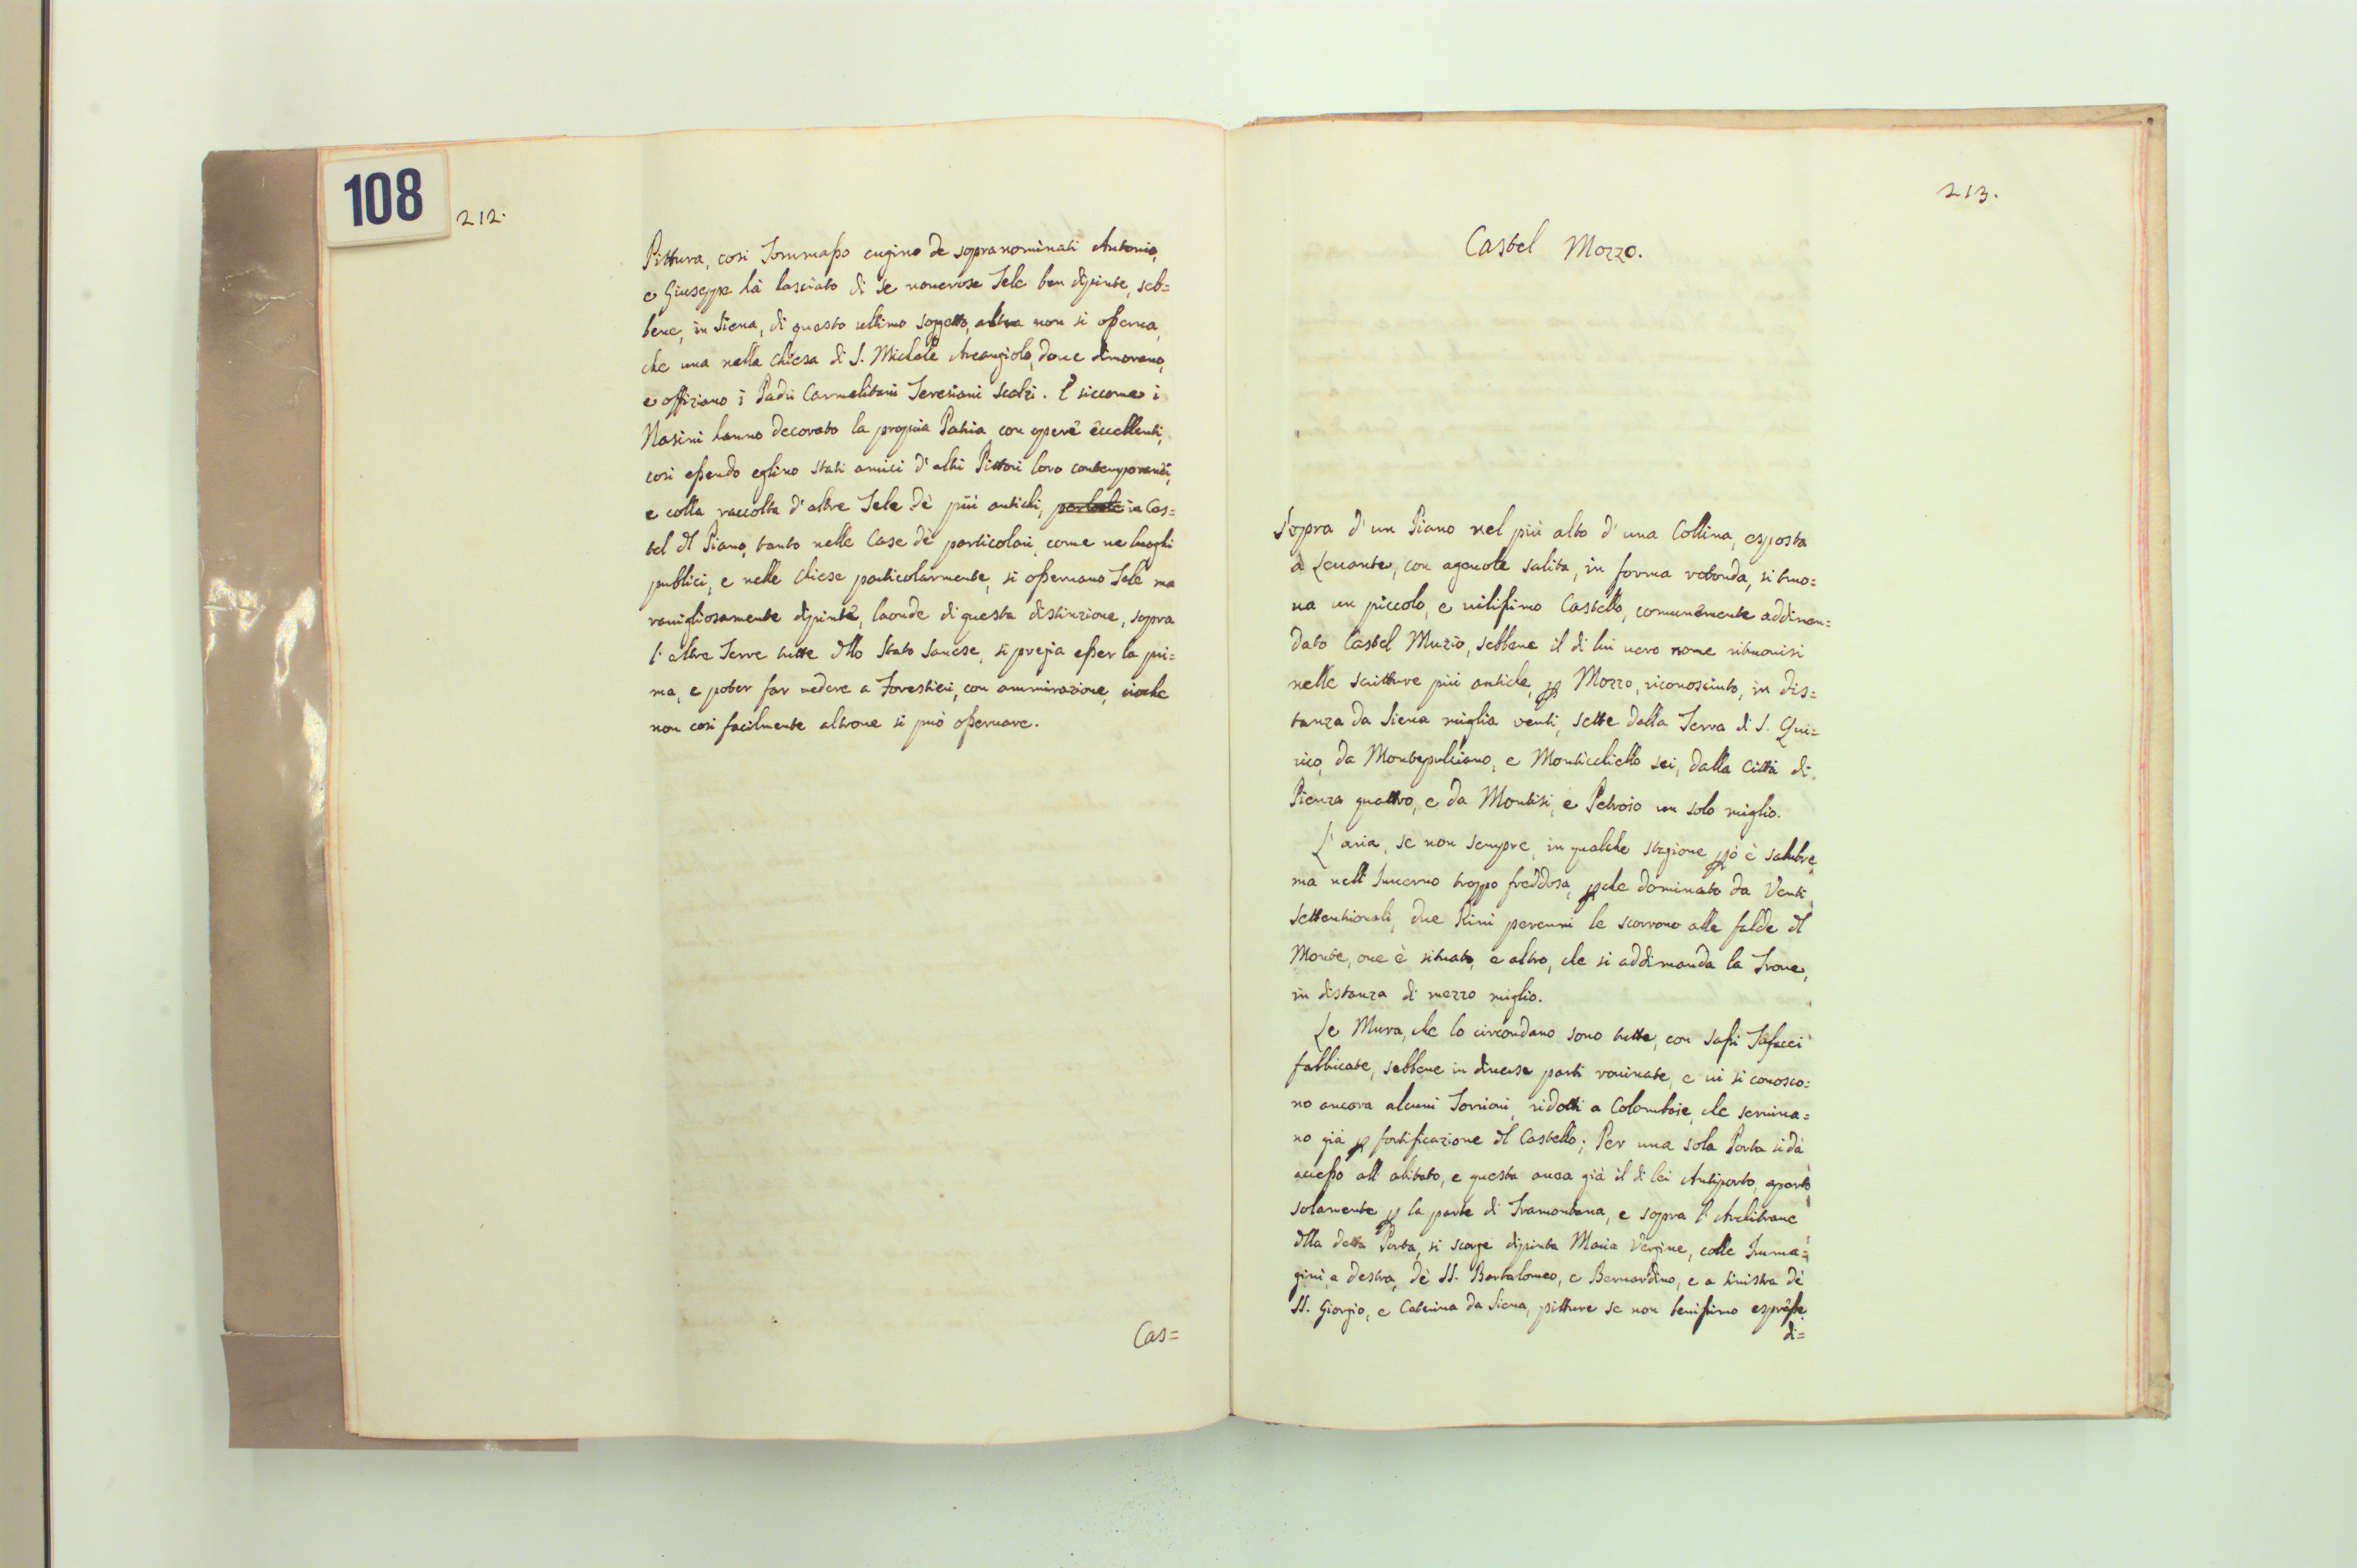 108
212.
Pittura, così Tommaso cugino de sopranominati Antonio,
e Giuseppe hà lasciato di se nonerose Tele ben dipinte, seb=
bene, in Siena, di questo ultimo soggetto, altra non si osserva,
che una nella Chiesa di S. Michele Arcangiolo, dove dimorano,
e offiziano i Padri Carmelitani Teresiani Scalzi. E siccome i
Nasini hanno decorato la propria Patria con opere eccellenti,
così essendo eglino stati amici d'altri Pittori loro contemporanei,
e colla raccolta d'altre Tele dè più antichi, in Cas=
tel dl Piano, tanto nelle Case dè particolari, come ne luoghi
publici, e nelle Chiese particolarmente, si osservano Tele ma
ravigliosamente dipinte, laonde di questa distinzione, sopra
l'altre Terre tutte dlla Stato Sanese, si pregia esser la pri=
ma, e poter far vedere a Forestieri, con ammirazione, cioche
non così facilmente altrove si può osservare.
Cas=
213.
Castel Mozzo.
Sopra d'un Piano nel più alto d'una Collina, esposta
à Levante, con agevole salita, in forma rotonda, si truo=
va un piccolo, e vilissimo Castello, comunemente addiman=
dato Castel Muzio, sebbene il di lui vero nome ritruovisi
nelle scritture più antiche, p Mozzo, riconosciuto, in dis=
tanza da Siena miglia venti, sette dalla Terra di S. Qui=
rico, da Montepulciano, e Monticchiello sei, dalla Città di
Pienza quattro, e da Montisi, e Petroio un solo miglio.
L'aria, se non sempre, in qualche stagione pò è salubre,
ma nell'Inverno troppo freddosa, pche dominato da Venti
Settentrionali, due Rivi perenni le scorrono alle falde dl
Monte, ove è situato, e altro, che si addimanda la Trove,
in distanza di mezzo miglio.
Le Mura, che lo circondano sono tutte, con Sassi Tufacei
fabbricate, sebbene in diverse parti rovinate, e vi si conosco=
no ancora alcuni Torrioni, ridotti a Colombaie, che serviva=
no già p fortificazione dl Castello; Per una sola Porta si dà
accesso all'abitato, e questa avea già il di lei Antiporto, aperto
solamente p la parte di Tramontana, e sopra l'Architrave
dlla detta Porta, si scorge dipinta Maria Vergine, colle Imma=
gini, a destra, dè SS. Bartalomeo, e Bernardino, e a sinistra dè
SS. Giorgio, e Caterina da Siena, pitture se non benissimo espresse
di=